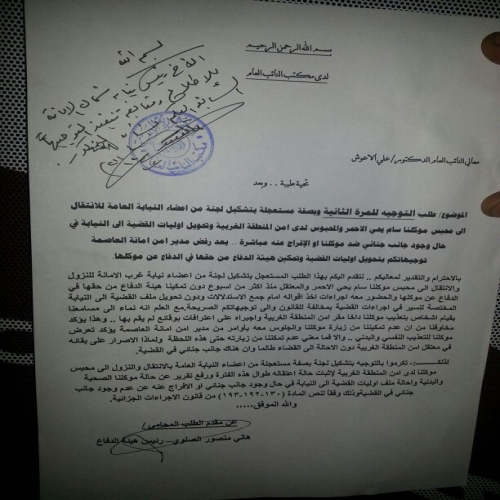 بسم الله الرحمن الرحيم
لدى مكتب النائب العام
بسم الله
معالي النائب العام الدكتور/ علي الاعوش
تحية طيبة . . وبعد
الموضوع/ طلب التوجيه للمرة الثانية وبصفة مستعجلة بتشكيل لجنة من اعضاء النيابة العامة للانتقال
الى محبس موكلنا سام يحي الاحمر والمحبوس لدى امن المنطقة الغربية وتحويل اوليات القضية الى النيابة في
حال وجود جانب جنائي ضد موكلنا او الإفراج عنه مباشرة .. بعد رفض مدير امن امانة العاصمة
توجيهاتكم بتحويل اوليات القضية وتمكين هيئة الدفاع من حقها في الدفاع عن موكلها
بالاحترام والتقدير لمعاليكم .. نتقدم اليكم بهذا الطلب المستعجل بتشكيل لجنة من اعضاء نيابة غرب الامانة للنزول
والانتقال الى محبس موكلنا سام يحي الاحمر والمعتقل منذ اكثر من اسبوع دون تمكيننا هيئة الدفاع من حقها في
الدفاع عن موكلها والحضور معه اجراءات اخذ اقواله امام جمع الاستدلالات ودون تحويل ملف القضية الى النيابة
المختصة للسير في اجراءات القضية بمخالفة للقانون والى توجيهاتكم الصريحة.مع العلم انه نماء الى مسامعنا
بقيام اشخاص بتعذيب موكلنا داخل مقر امن المنطقة الغربية واجباره على اعترافات بوقائع لم يقم بها .. وهذا يؤكد
مخاوفنا من ان عدم تمكيننا من زيارة موكلنا والجلوس معه بأوامر من مدير امن امانة العاصمة يؤكد تعرض
موكلنا للتعذيب النفسي والبدني .. والا فما معنى عدم تمكننا من زيارته حتى هذه اللحظة ولماذا الاصرار على بقائه
في معتقل امن المنطقة الغربية دون الاحالة الى القضاء طالما وان هناك جانب جنائي في القضية.
لذلك.... تكرموا بالتوجيه بتشكيل لجنة بصفة مستعجلة من اعضاء النيابة العامة بالانتقال والنزول الى محبس
موكلنا لدى امن المنطقة الغربية لإثبات حالة اعتقاله طوال هذه الفترة ورفع تقرير عن حالة موكلنا الصحية
والبدنية واحالة ملف اوليات القضية الى النيابة في حال وجود جانب جنائي او الافراج عنه عن عدم وجود جانب
جنائي في القضيةوذلك وفقا لنص المادة (١٣٠-١٩٢-١٩٣) من قانون الاجراءات الجزائية.
والله الموفق.....
عن مقدم الطلب المحامي/
هاني منصور الصلوي.. رئيس هيئة الدفاع